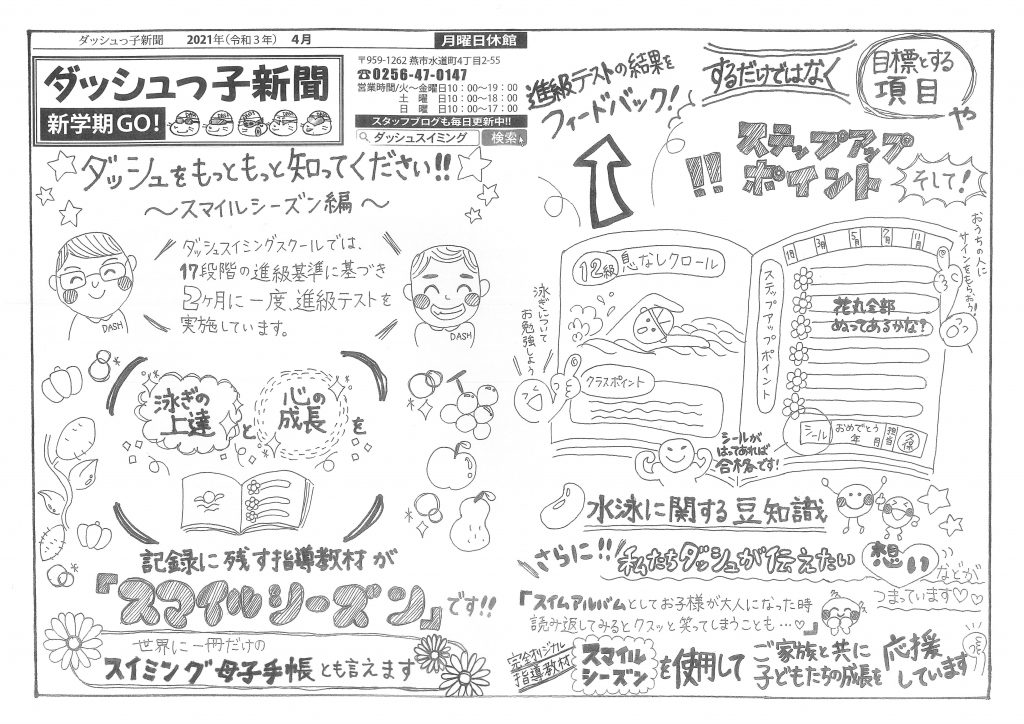 ダッシュっ子新聞 2021年(令和3年) 4月
月曜日休館
ダッシュっ子新聞
新学期GO!
〒959-1262 燕市水道町4丁目2-55
☎0256-47-0147
営業時間/火〜金曜日10:00〜19:00
土 曜 日10:00〜18:00
日 曜 日10:00〜17:00
スタッフブログも毎日更新中!!
ダッシュスイミング 検索
ダッシュをもっともっと知ってください!!
〜スマイルシーズン編〜
ダッシュスイミングスクールでは、
17段階の進級基準に基づき
2ヶ月に一度、進級テストを
実施しています。
DASH
DASH
泳ぎの
上達
と
心の
成長
を
記録に残す指導教材が
「スマイルシーズン」です!!
世界に一冊だけの
スイミング母子手帳とも言えます
進級テストの結果を
フィードバック!
するだけではなく
目標とする
項目
や
ステップアップ
ポイント
!!
そして!
12級 息なしクロール
泳ぎについて
お勉強しよう
クラスポイント
ステップアップポイント
1月 3月 5月 7月 11月
花丸全部
ぬってあるかな?
おうちの人に
サインをもらおう!
シール
おめでとう
年 月
担当
シールが
はってあれば
合格です!
水泳に関する豆知識
さらに!! 私たちダッシュが伝えたい
想い
などが
つまっています♡♡
「スイムアルバムとしてお子様が大人になった時
読み返してみるとクスッと笑ってしまうことも…♡」
完全オリジナル
指導教材
スマイル
シーズン
を使用して
ご家族と共に
子どもたちの成長を
応援
しています